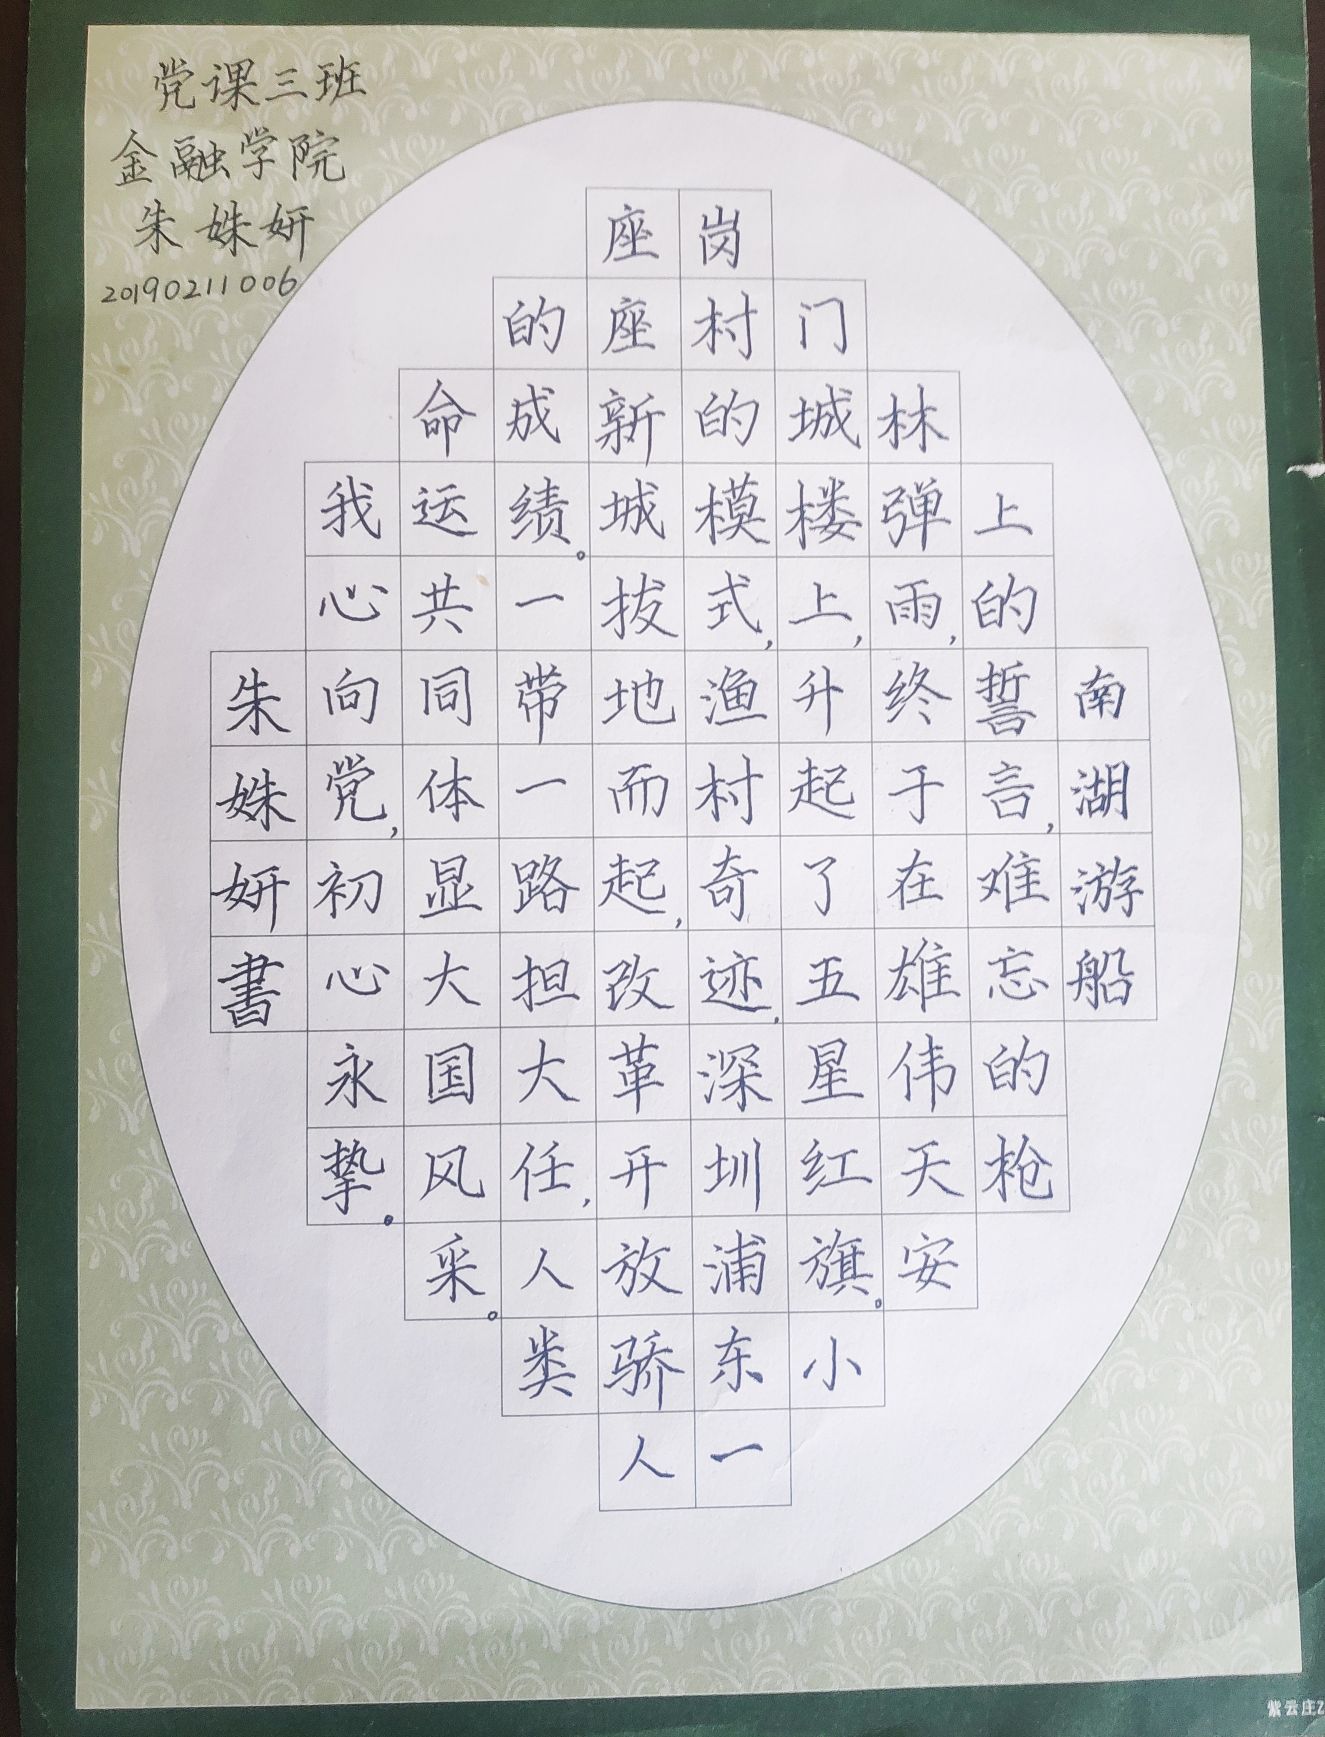 党课三班
金融学院
朱姝妍
20190211006
南湖游船
上的誓言，难忘的枪
林弹雨，终于在雄伟天安
门城楼上，升起了五星红旗。小
岗村的模式，渔村奇迹，深圳浦东一
座座新城拔地而起，改革开放骄人
的成绩。一带一路担大任，人类
命运共同体显大国风采。
我心向党，初心永挚。
朱姝妍書
紫云庄